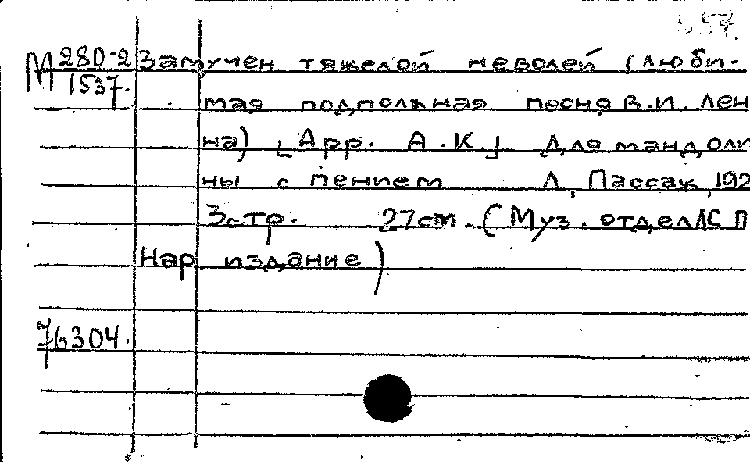 557.
М 280-2 Замучен тяжелой неволей (люби-
1537. мая подпольная песня В.И. Лен
на) [Арр. А.К.] Для мандоли
ны с пением Л, Пассаж, 192
3 стр. 27 см. (Муз. отдел ЛСП
Нар издание)
76304.